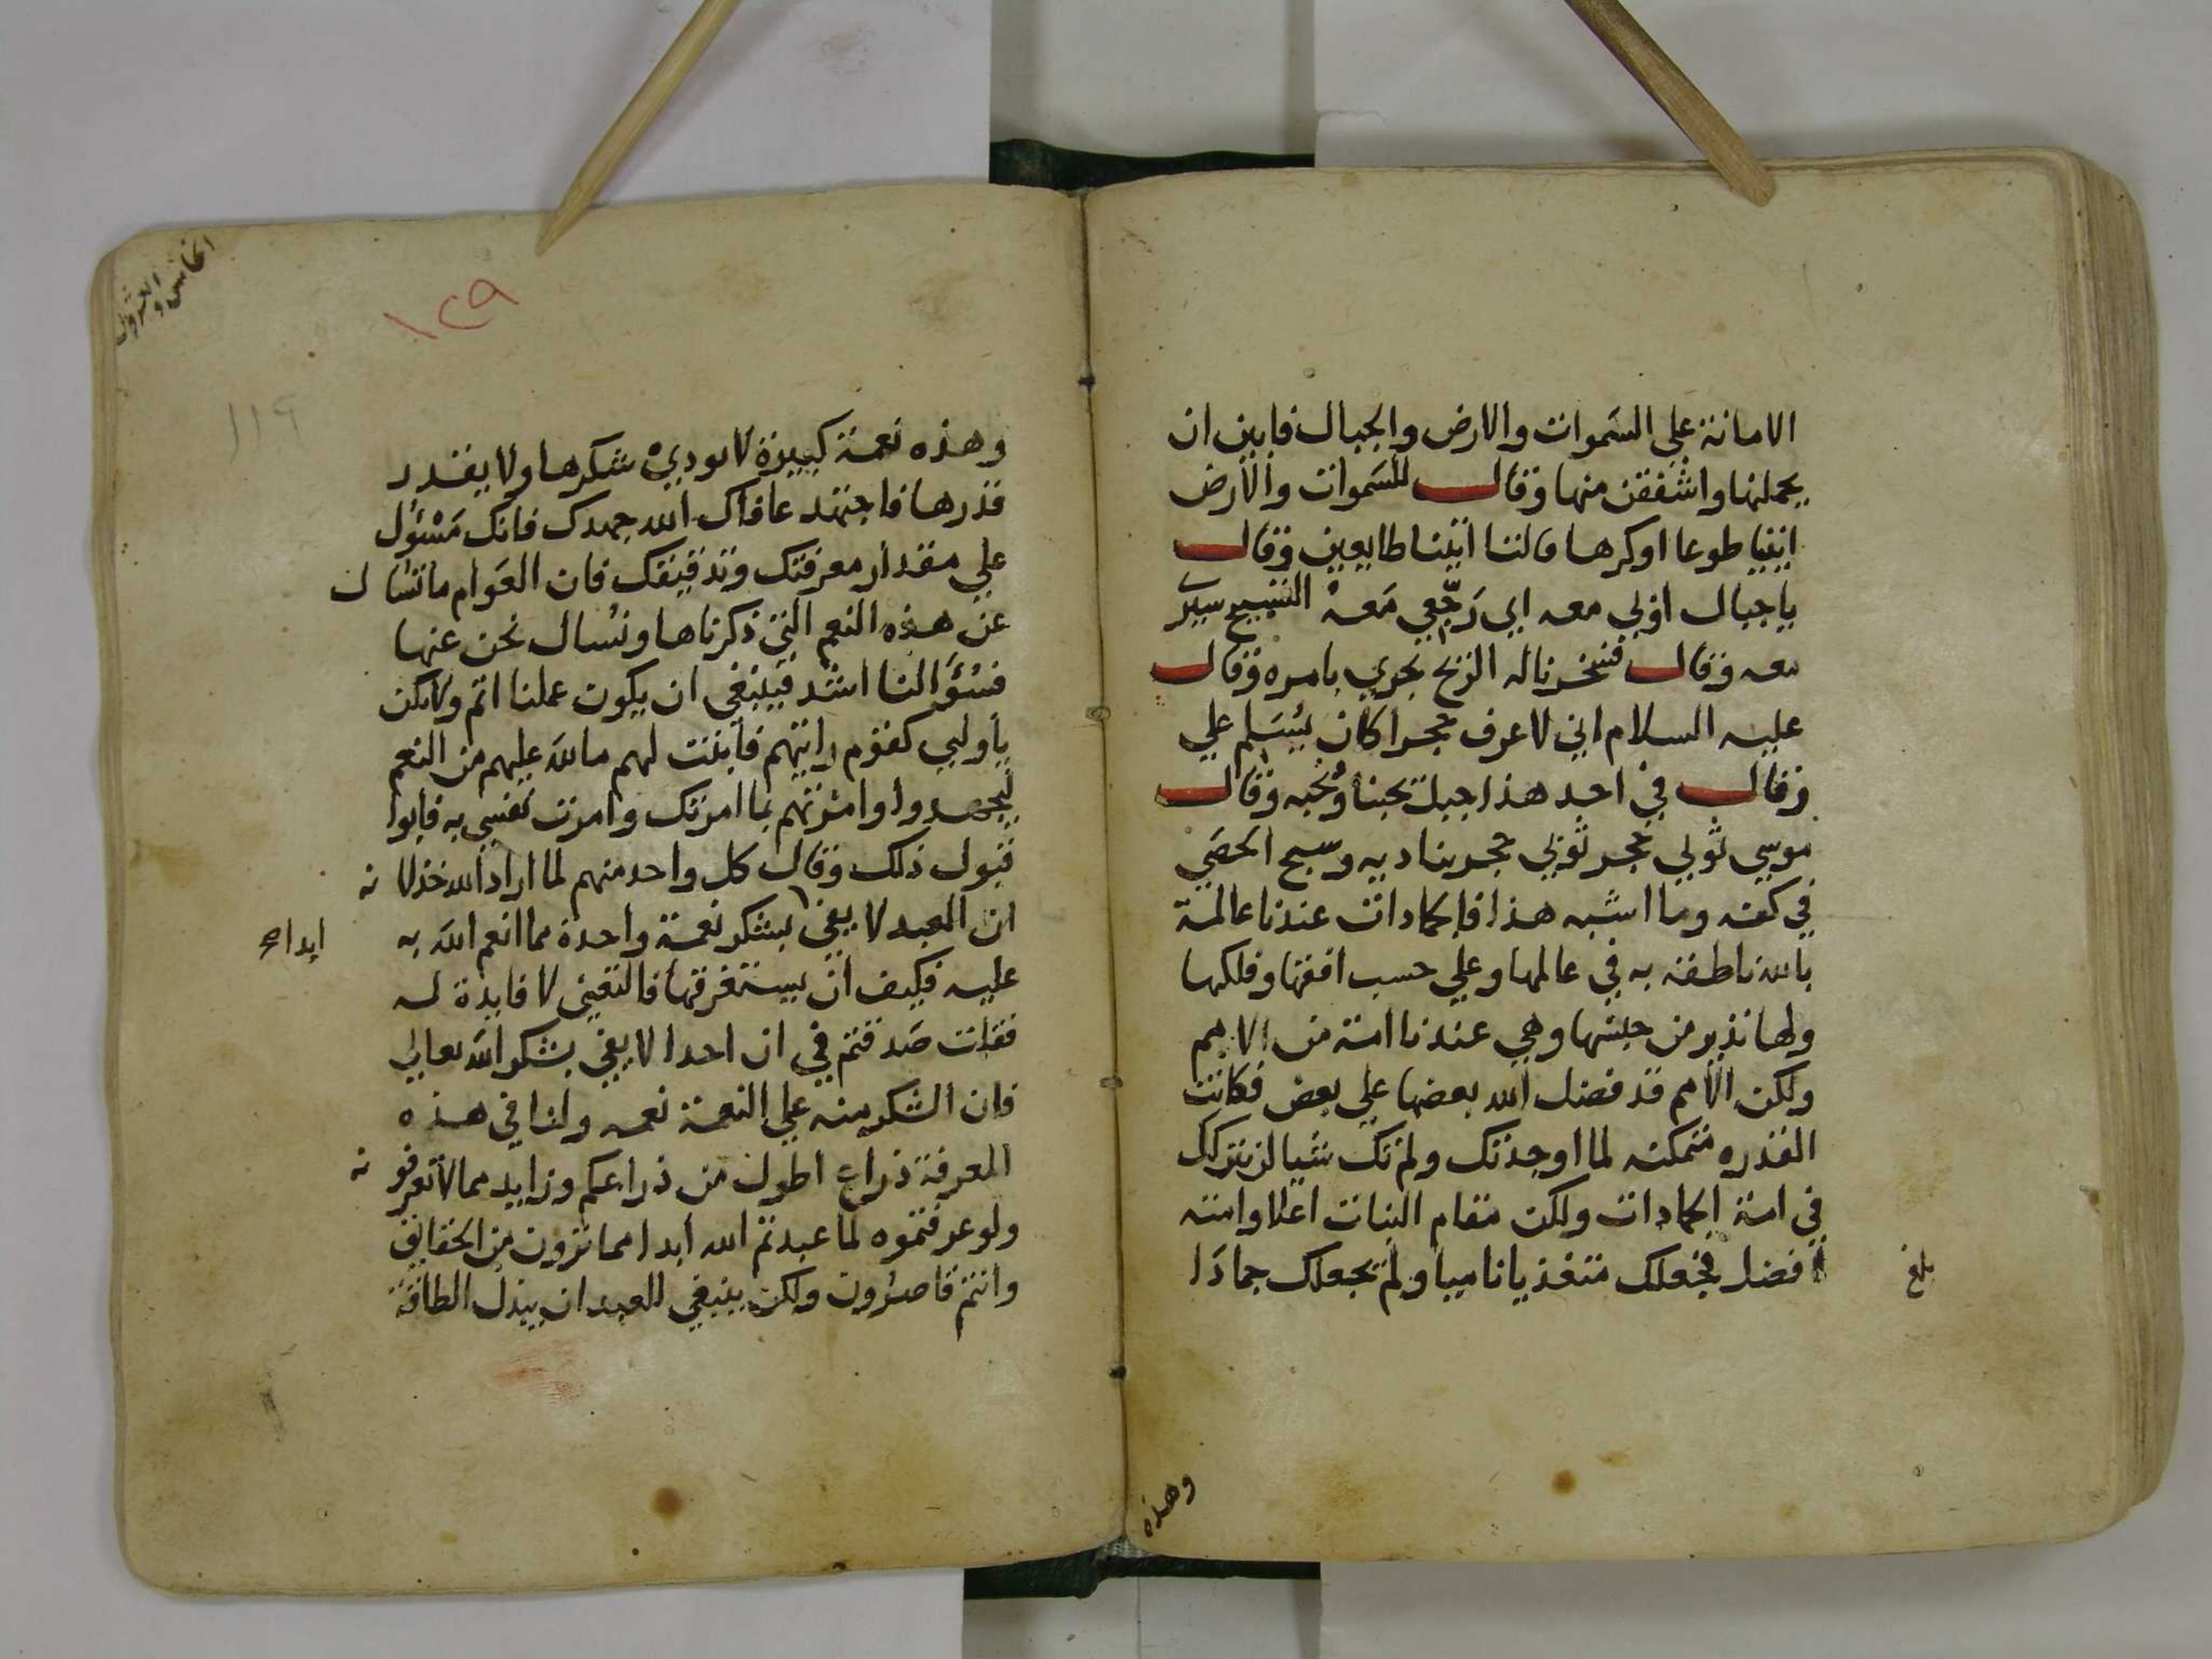 الامانة علي السموات والارض والجبال فابين ان
يحملنها واشفقن منها وقال للسموات والارض
ايتيا طوعا اوكرها قالتا اتينا طايعين وقال
ياجبال اوبي معه اي رجّعي معه التسبيح سيرّ
معه وقال فسخرنا له الريح تجري بامره وقال
عليه السلام اني لاعرف حجرا كان يسلم علي
وقال في احد هذا جبل يحبنا ونحبه وقال
موسي ثوبي حجر ثوبي حجر يناديه وسبح الحصي
في كفه وما اشبه هذا فالجمادات عندنا عالمة
بالله ناطقة به في عالمها وعلي حسب افقها وفلكها
ولها نذير من جنسها وهي عندنا امة من الامم
ولكن الامم قد فضل الله بعضها علي بعض فكانت
القدره متمكنه لما اوجدتك ولم تك شيا لن تتركك
في امة الجمادات ولكن مقام النبات اعلا وامته
افضل فجعلك متغذيا ناميا ولم يجعلك جمادا
بلغ
وهذه
الخامس والعشرون
١٢٩
١١٩
وهذه نعمة كبيرة لا يودي شكرها ولا يقدر
قدرها فاجتهد عافاك الله جهدك فانك مسؤل
علي مقدار معرفتك وتدقيقك فان العوام ماتسال
عن هذه النعم التي ذكرناها ونسال نحن عنها
فسؤالنا اشد فينبغي ان يكون عملنا اتم ولا تكن
ياوليي كقوم رايتهم فابنت لهم مالله عليهم من النعم
ليجهدوا وامرتهم بما امرتك وامرت نفسي به فابوا
قبول ذلك وقال كل واحد منهم لما اراد الله خذلانه
ان العبد لا يفي بشكر نعمة واحدة مما انعم الله به
عليه فكيف ان يستغرقها فالتعني لا فايدة له
فقلت صدقتم في ان احدا لا يفي بشكر الله تعالي
فان الشكر منه علي النعمة نعمه ولنا في هذه
المعرفة ذراع اطول من ذراعكم وزايد مما لا تعرفونه
ولو عرفتموه لما عبدتم الله ابدا مما ترون من الحقايق
وانتم قاصرون ولكن ينبغي للعبد ان يبذل الطاقة
ابدا صح